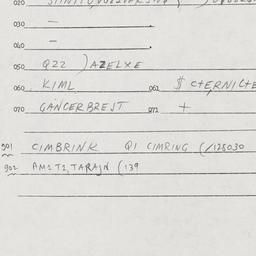 020
030 –
040 –
050 QZZ ) AZELXE
060 KIML 061 $ CTERNICTE
070 GANCERBREJT 071 +
901 CIMBRINK QI CIMRING (/128030
902 AM1 T1, TARAJN (139